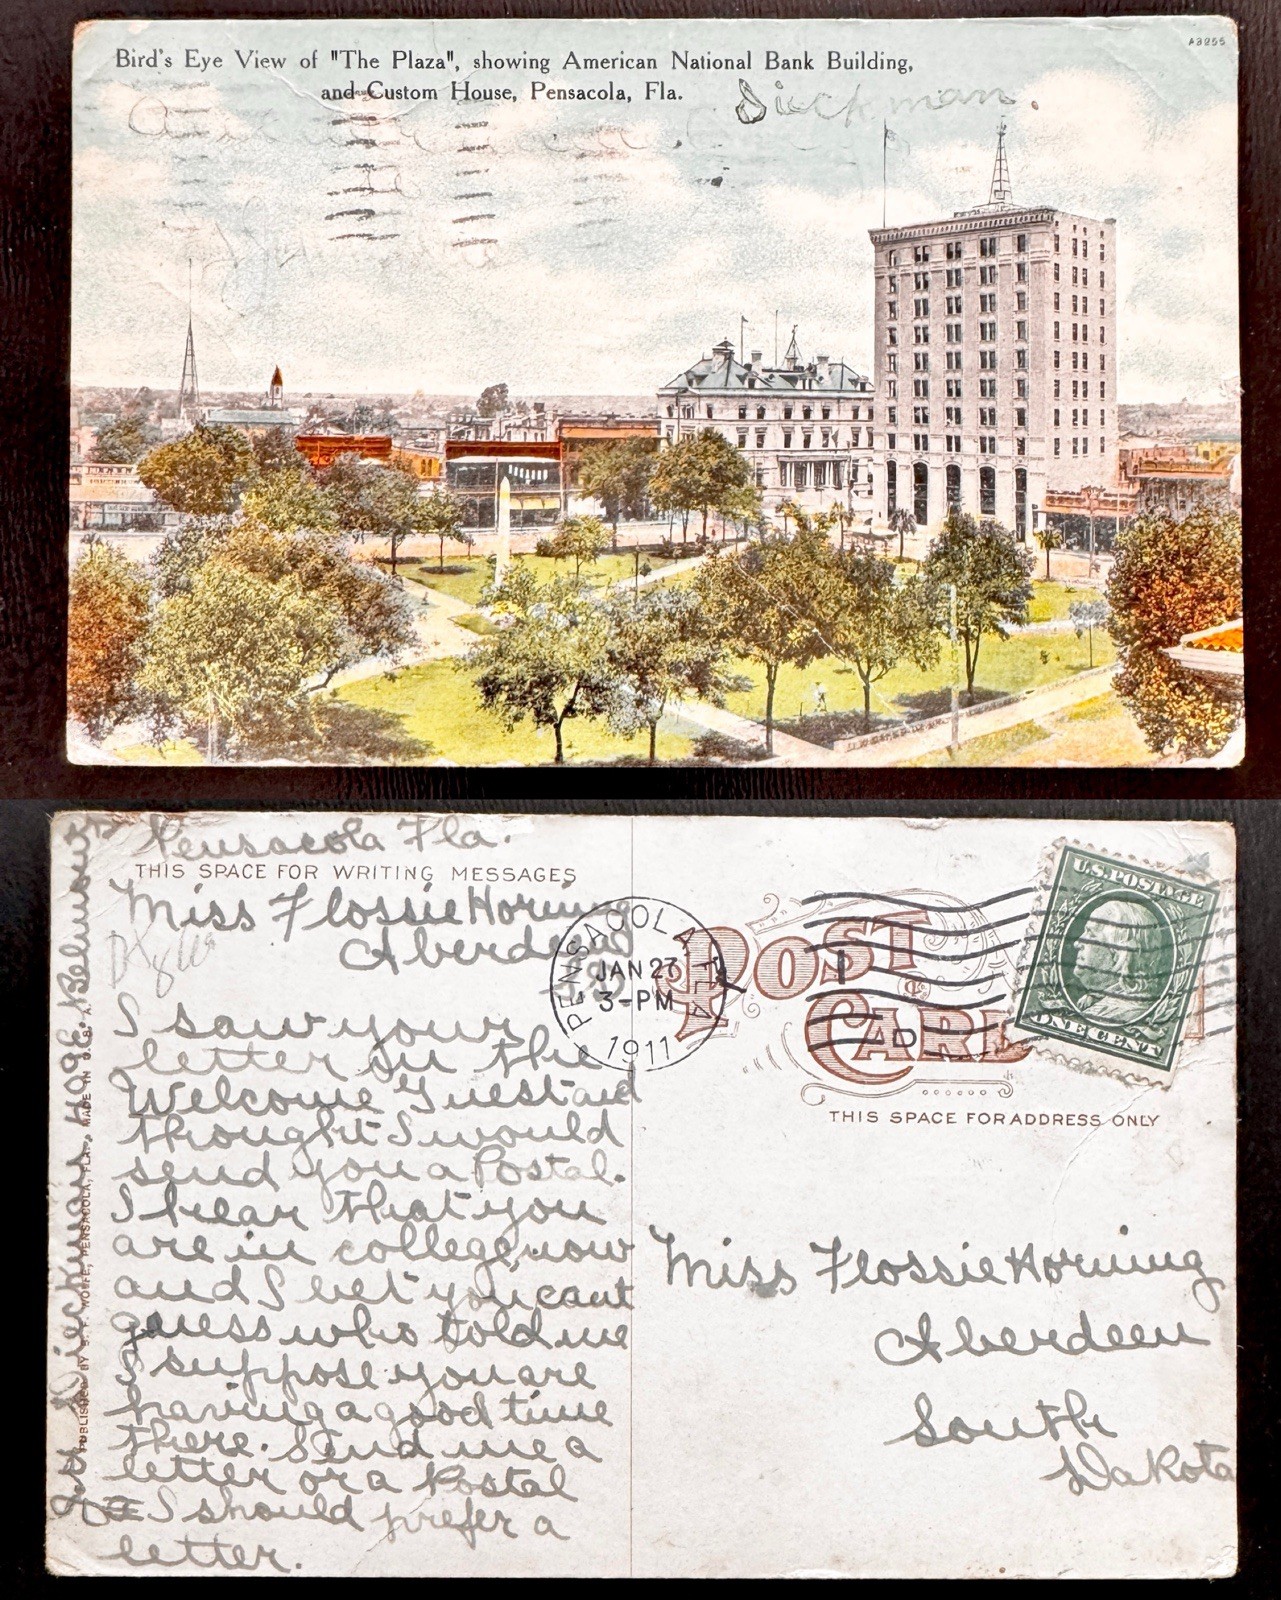 Bird's Eye View of "The Plaza", showing American National Bank Building,
and Custom House, Pensacola, Fla.
A3255
Dieckman.
Pensacola Fla.
THIS SPACE FOR WRITING MESSAGES
Miss Flossie Horning
Aberdeen
S.D.
I saw your
letter in the
Welcome Guest and
thought I would
send you a Postal.
I hear that you
are in college now
and I bet you cant
guess who told me
I suppose you are
having a good time
there. Send me a
letter or a Postal
I should prefer a
letter.
Dieckman 1109 E. Belmont
PUBLISHED BY S. F. WOLFE, PENSACOLA, FLA., MADE IN U. S. A.
PENSACOLA, FLA
JAN 27
3-PM
1911
POST
CARD
U.S. POSTAGE
ONE CENT
THIS SPACE FOR ADDRESS ONLY
Miss Flossie Horning
Aberdeen
South
Dakota